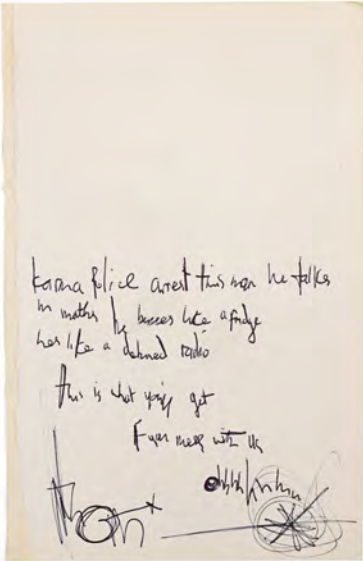 karma police arrest this man he talks
in maths he buzzes like a fridge
hes like a detuned radio
this is what you get
if you mess with us
thom